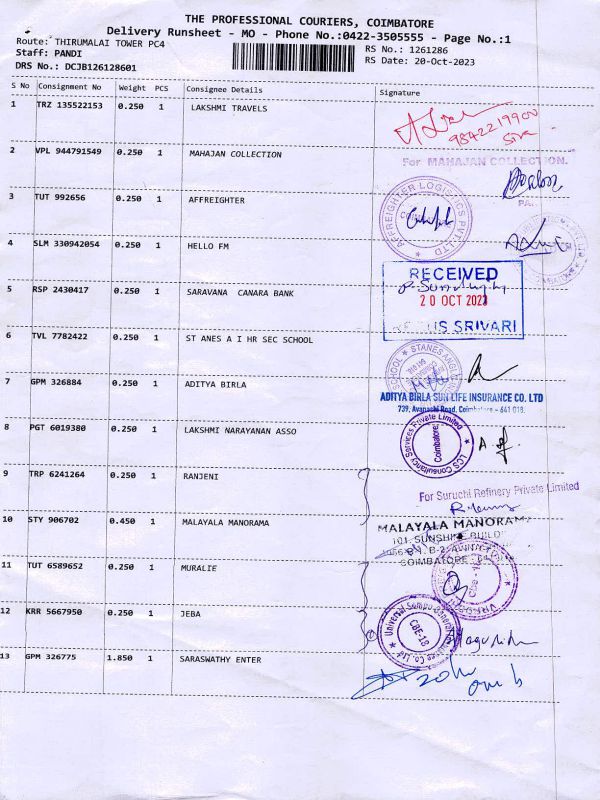 THE PROFESSIONAL COURIERS, COIMBATORE
Delivery Runsheet - MO - Phone No.:0422-3505555 - Page No.:1
Route: THIRUMALAI TOWER PC4 RS No.: 1261286
Staff: PANDI RS Date: 20-Oct-2023
DRS No.: DCJB126128601
S No Consignment No Weight PCS Consignee Details Signature
1 TRZ 135522153 0.250 1 LAKSHMI TRAVELS
9842219900
Siva
2 VPL 944791549 0.250 1 MAHAJAN COLLECTION
For MAHAJAN COLLECTION.
3 TUT 992656 0.250 1 AFFREIGHTER
AFFREIGHTER LOGISTICS PVT LTD
4 SLM 330942054 0.250 1 HELLO FM
5 RSP 2430417 0.250 1 SARAVANA CANARA BANK
RECEIVED
20 OCT 2023
SRIVARI
6 TVL 7782422 0.250 1 ST ANES A I HR SEC SCHOOL
SCHOOL STANES ANGLO
7 GPM 326884 0.250 1 ADITYA BIRLA
ADITYA BIRLA SUN LIFE INSURANCE CO. LTD
739, Avanachi Road, Coimbatore - 641 018.
8 PGT 6019380 0.250 1 LAKSHMI NARAYANAN ASSO
LCS Consultancy Services Private Limited
Coimbatore
9 TRP 6241264 0.250 1 RANJENI
For Suruchi Refinery Private Limited
10 STY 906702 0.450 1 MALAYALA MANORAMA
MALAYALA MANORAMA
101, SUNSHINE BUILD
COIMBATORE
11 TUT 6589652 0.250 1 MURALIE
Cbe - 18
12 KRR 5667950 0.250 1 JEBA
Universal Sompo General Insurance Co. Ltd
CBE-18
13 GPM 326775 1.850 1 SARASWATHY ENTER